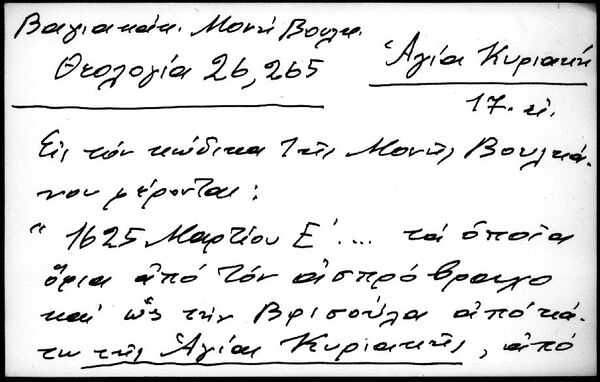 Βαγιακάκ. Μονή Βουλκ.
Θεολογία 26, 265
Ἁγία Κυριακή
17. αἰ.
Εἰς τόν κώδικα τῆς Μονῆς Βουλκά-
νου φέρονται:
" 1625 Μαρτίου Ε' .... τά ὁποῖα
ὅρια ἀπό τόν ἀσπρόβραχο
καί ὡς τήν Βρισούλα ἀπό κά-
τω τῆς Ἁγίας Κυριακῆς, ἀπό